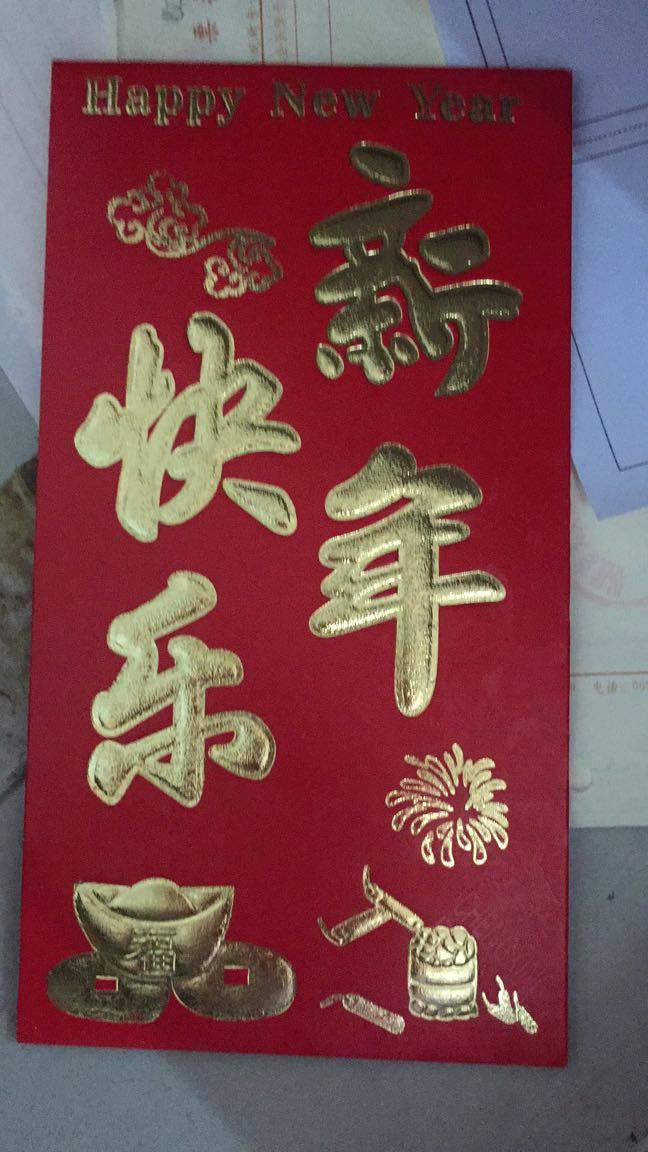 Happy New Year
新年
快乐
福